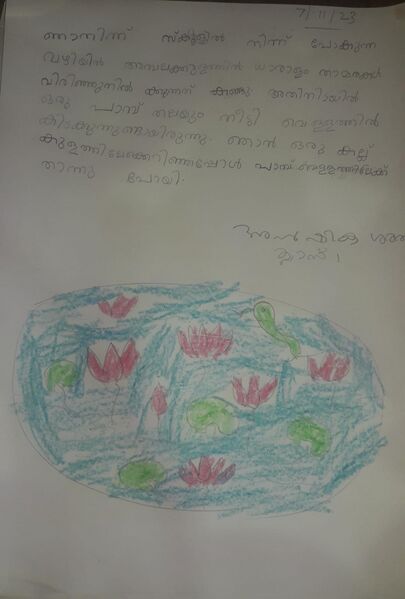 7/11/23
ഞാനിന്ന് സ്കൂളിൽ നിന്ന് പോകുന്ന
വഴിയിൽ അമ്പലക്കുളത്തിൽ ധാരാളം താമരകൾ
വിരിഞ്ഞുനിൽ ക്കുന്നത് കണ്ടു. അതിനിടയിൽ
ഒരു പാമ്പ് തലയും നീട്ടി വെള്ളത്തിൽ
കിടക്കുന്നുണ്ടായിരുന്നു. ഞാൻ ഒരു കല്ല്
കുളത്തിലേക്കെറിഞ്ഞപ്പോൾ പാമ്പ് വെള്ളത്തിലേക്ക്
താന്നു പോയി.
ക്ലാസ് 1